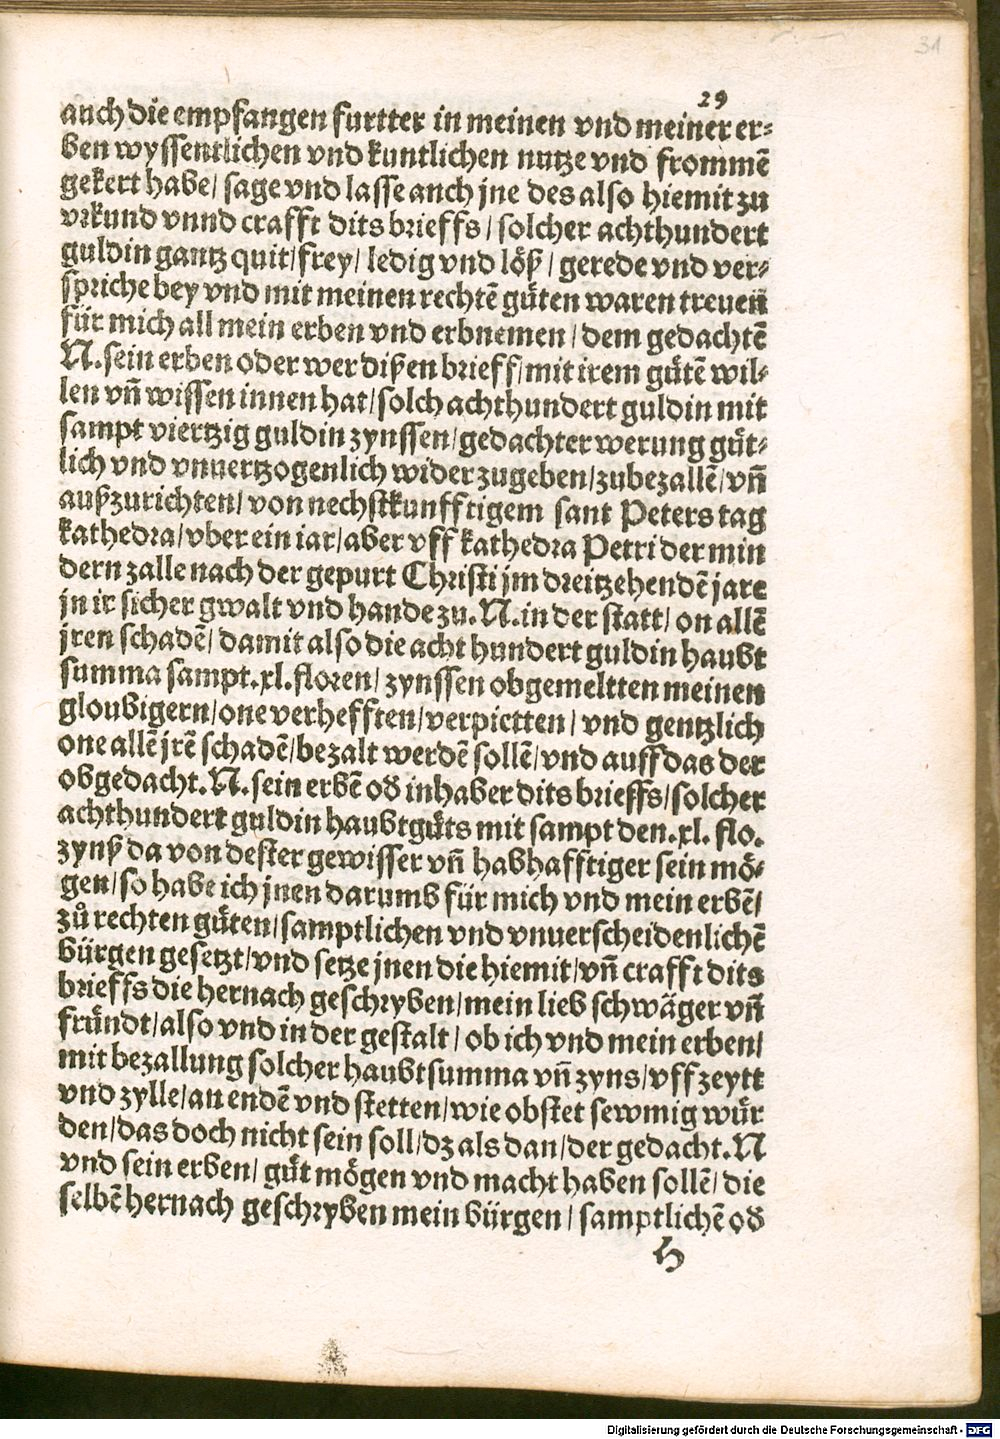 31
29
auch die empfangen furtter in meinen vnd meiner er⸗
ben wyssentlichen vnd kuntlichen nutze vnd frommē
gekert habe/ sage vnd lasse auch jne des also hiemit zu
vrkund vnnd crafft dits brieffs/ solcher achthundert
guldin gantz quit/ frey/ ledig vnd löß/ gerede vnd ver⸗
spriche bey vnd mit meinen rechtē gůten waren treuen̄
für mich all mein erben vnd erbnemen/ dem gedachtē
N. sein erben oder wer dißen brieff/ mit irem gůtē wil⸗
len vn̄ wissen innen hat/ solch achthundert guldin mit
sampt viertzig guldin zynssen/ gedachter werung gůt⸗
lich vnd vnuertzogenlich wider zugeben/ zubezallē/ vn̄
außzurichten/ von nechstkunfftigem sant Peters tag
kathedra/ vber ein iar/ aber vff kathedra Petri der min
dern zalle nach der gepurt Christi jm dreitzehendē jare
jn ir sicher gwalt vnd hande zu. N. in der statt/ on allē
jren schadē/ damit also die acht hundert guldin haubt
summa sampt .xl. floren/ zynssen obgemeltten meinen
gloubigern/ one verhefften/ verpietten/ vnd gentzlich
one allē jrē schadē/ bezalt werdē sollē/ vnd auff das der
obgedacht. N. sein erbē oď inhaber dits brieffs/ solcher
achthundert guldin haubtgůts mit sampt den .xl. flo.
zynß da von dester gewisser vn̄ habhafftiger sein mö⸗
gen/ so habe ich jnen darumb für mich vnd mein erbē/
zů rechten gůten/ samptlichen vnd vnuerscheidenlichē
bürgen gesetzt/ vnd setze jnen die hiemit/ vn̄ crafft dits
brieffs die hernach geschryben/ mein lieb schwäger vn̄
fründt/ also vnd in der gestalt/ ob ich vnd mein erben/
mit bezallung solcher haubtsumma vn̄ zyns/ vff zeytt
vnd zylle/ an endē vnd stetten/ wie obstet sewmig wůr
den/ das doch nicht sein soll/ dz als dan/ der gedacht. N
vnd sein erben/ gůt mögen vnd macht haben sollē/ die
selbē hernach geschryben mein bürgen/ samptlichē oď
H
Digitalisierung gefördert durch die Deutsche Forschungsgemeinschaft - DFG